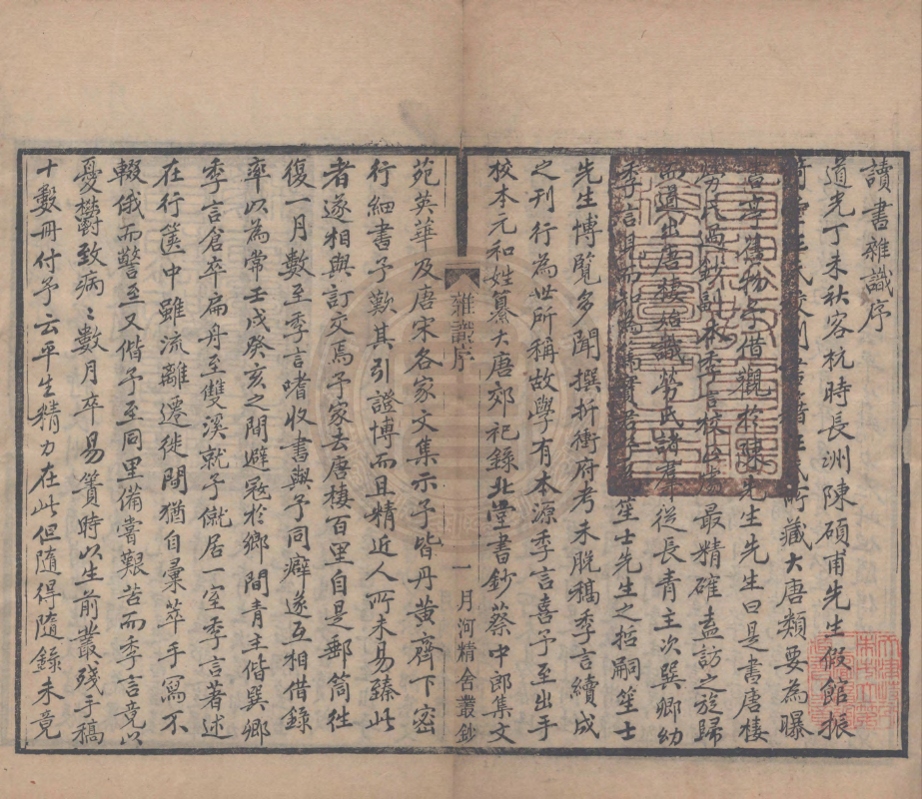 讀書雜識序
道光丁未秋客杭時長洲陳碩甫先生假館振
綺堂汪氏校刊書籍汪氏所藏大唐類要為曝
書亭舊物予借觀於陳先生先生曰是書唐棲
勞氏過鈔副本季言校此書最精確盍訪之旋歸
而道出唐棲始識勞氏諸君從長青主次巽卿幼
季言
笙士先生之哲嗣笙士
先生博覽多聞撰折衝府考未脫稿季言續成
之刊行為世所稱故學有本源季言喜予至出手
校本元和姓纂大唐郊祀錄北堂書鈔蔡中郎集文
雜識序
一
月河精舍叢鈔
苑英華及唐宋各家文集示予皆丹黃齊下密
行細書予歎其引證博而且精近人所未易臻此
者遂相與訂交焉予家去唐棲百里自是郵筒往
復一月數至季言嗜收書與予同癖遂互相借錄
率以為常壬戌癸亥之間避寇於鄉間青主偕巽卿
季言倉卒扁舟至雙溪就予僦居一室季言著述
在行篋中雖流離遷徙間猶自彙萃手寫不
輟俄而警至又偕予至同里備嘗艱苦而季言竟以
憂鬱致病〻數月卒易簀時以生前叢殘手稿
十數冊付予云平生精力在此但隨得隨錄未竟